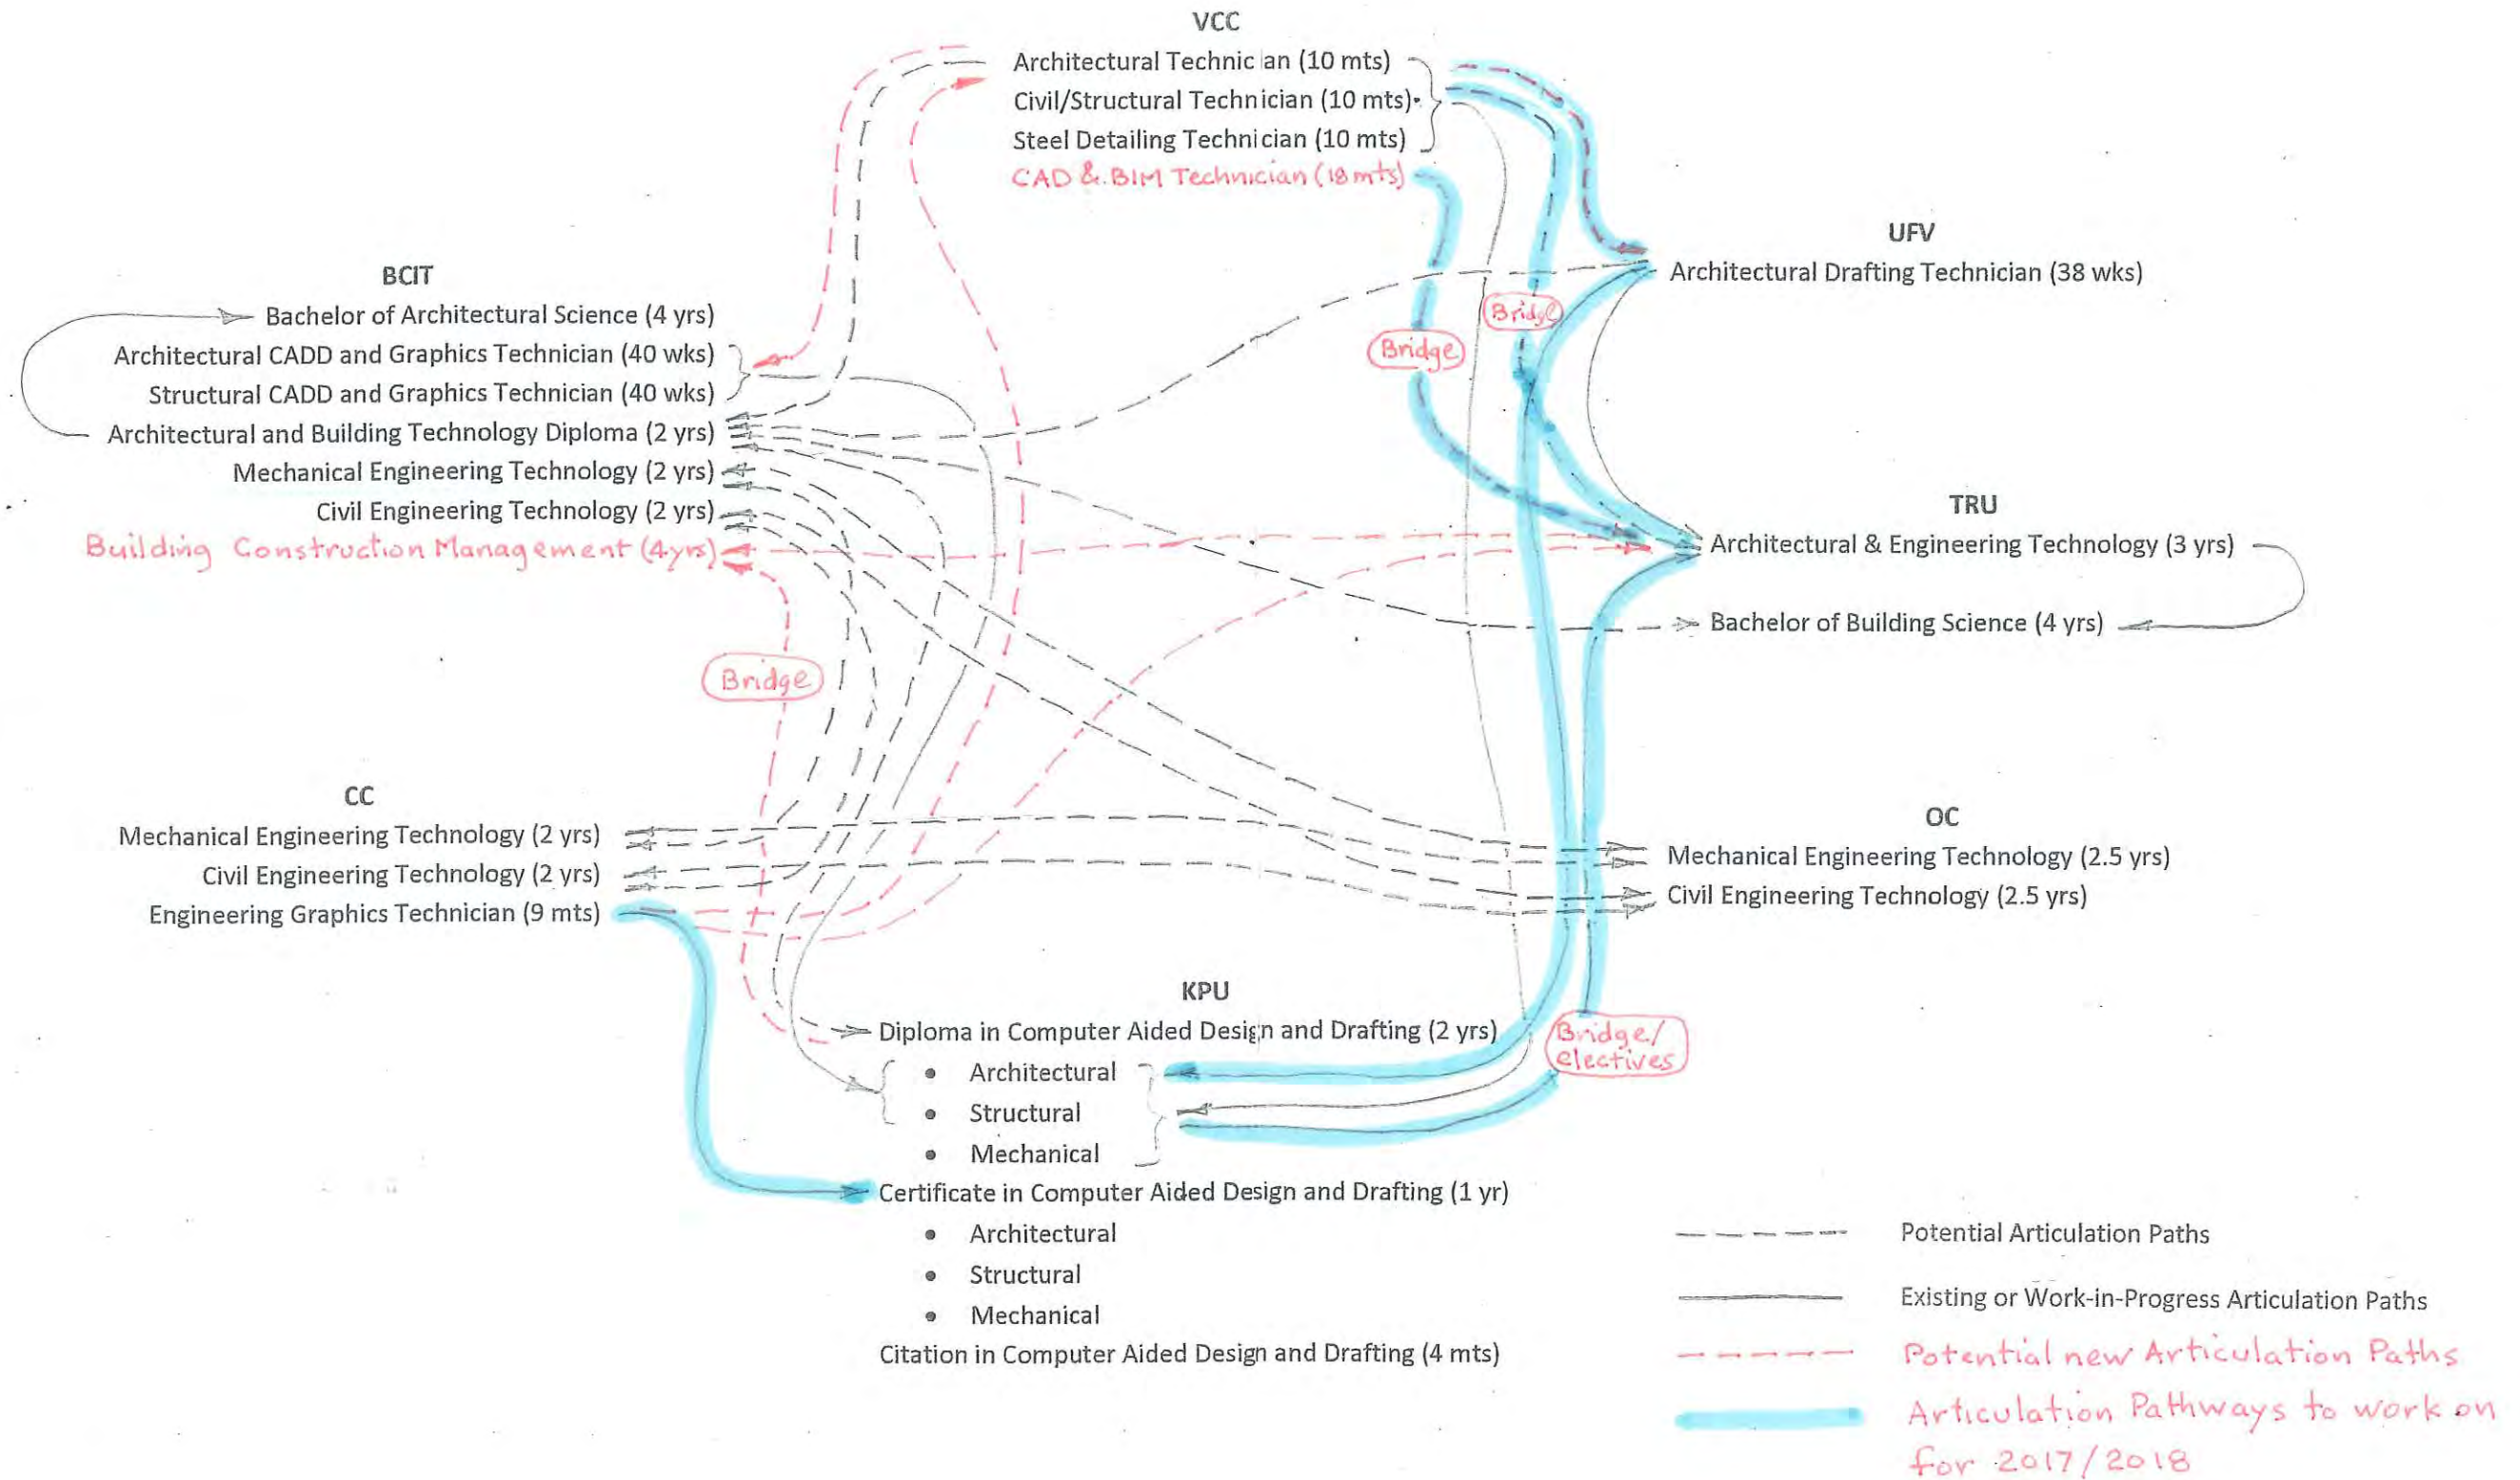 VCC
Architectural Technician (10 mts)
Civil/Structural Technician (10 mts)
Steel Detailing Technician (10 mts)
CAD & BIM Technician (18 mts)
UFV
Architectural Drafting Technician (38 wks)
BCIT
Bachelor of Architectural Science (4 yrs)
Architectural CADD and Graphics Technician (40 wks)
Structural CADD and Graphics Technician (40 wks)
Architectural and Building Technology Diploma (2 yrs)
Mechanical Engineering Technology (2 yrs)
Civil Engineering Technology (2 yrs)
Building Construction Management (4yrs)
Bridge
Bridge
TRU
Architectural & Engineering Technology (3 yrs)
Bachelor of Building Science (4 yrs)
Bridge
CC
Mechanical Engineering Technology (2 yrs)
Civil Engineering Technology (2 yrs)
Engineering Graphics Technician (9 mts)
OC
Mechanical Engineering Technology (2.5 yrs)
Civil Engineering Technology (2.5 yrs)
KPU
Diploma in Computer Aided Design and Drafting (2 yrs)
• Architectural
• Structural
• Mechanical
Bridge/
electives
Certificate in Computer Aided Design and Drafting (1 yr)
• Architectural
• Structural
• Mechanical
Citation in Computer Aided Design and Drafting (4 mts)
Potential Articulation Paths
Existing or Work-in-Progress Articulation Paths
Potential new Articulation Paths
Articulation Pathways to work on
for 2017/2018